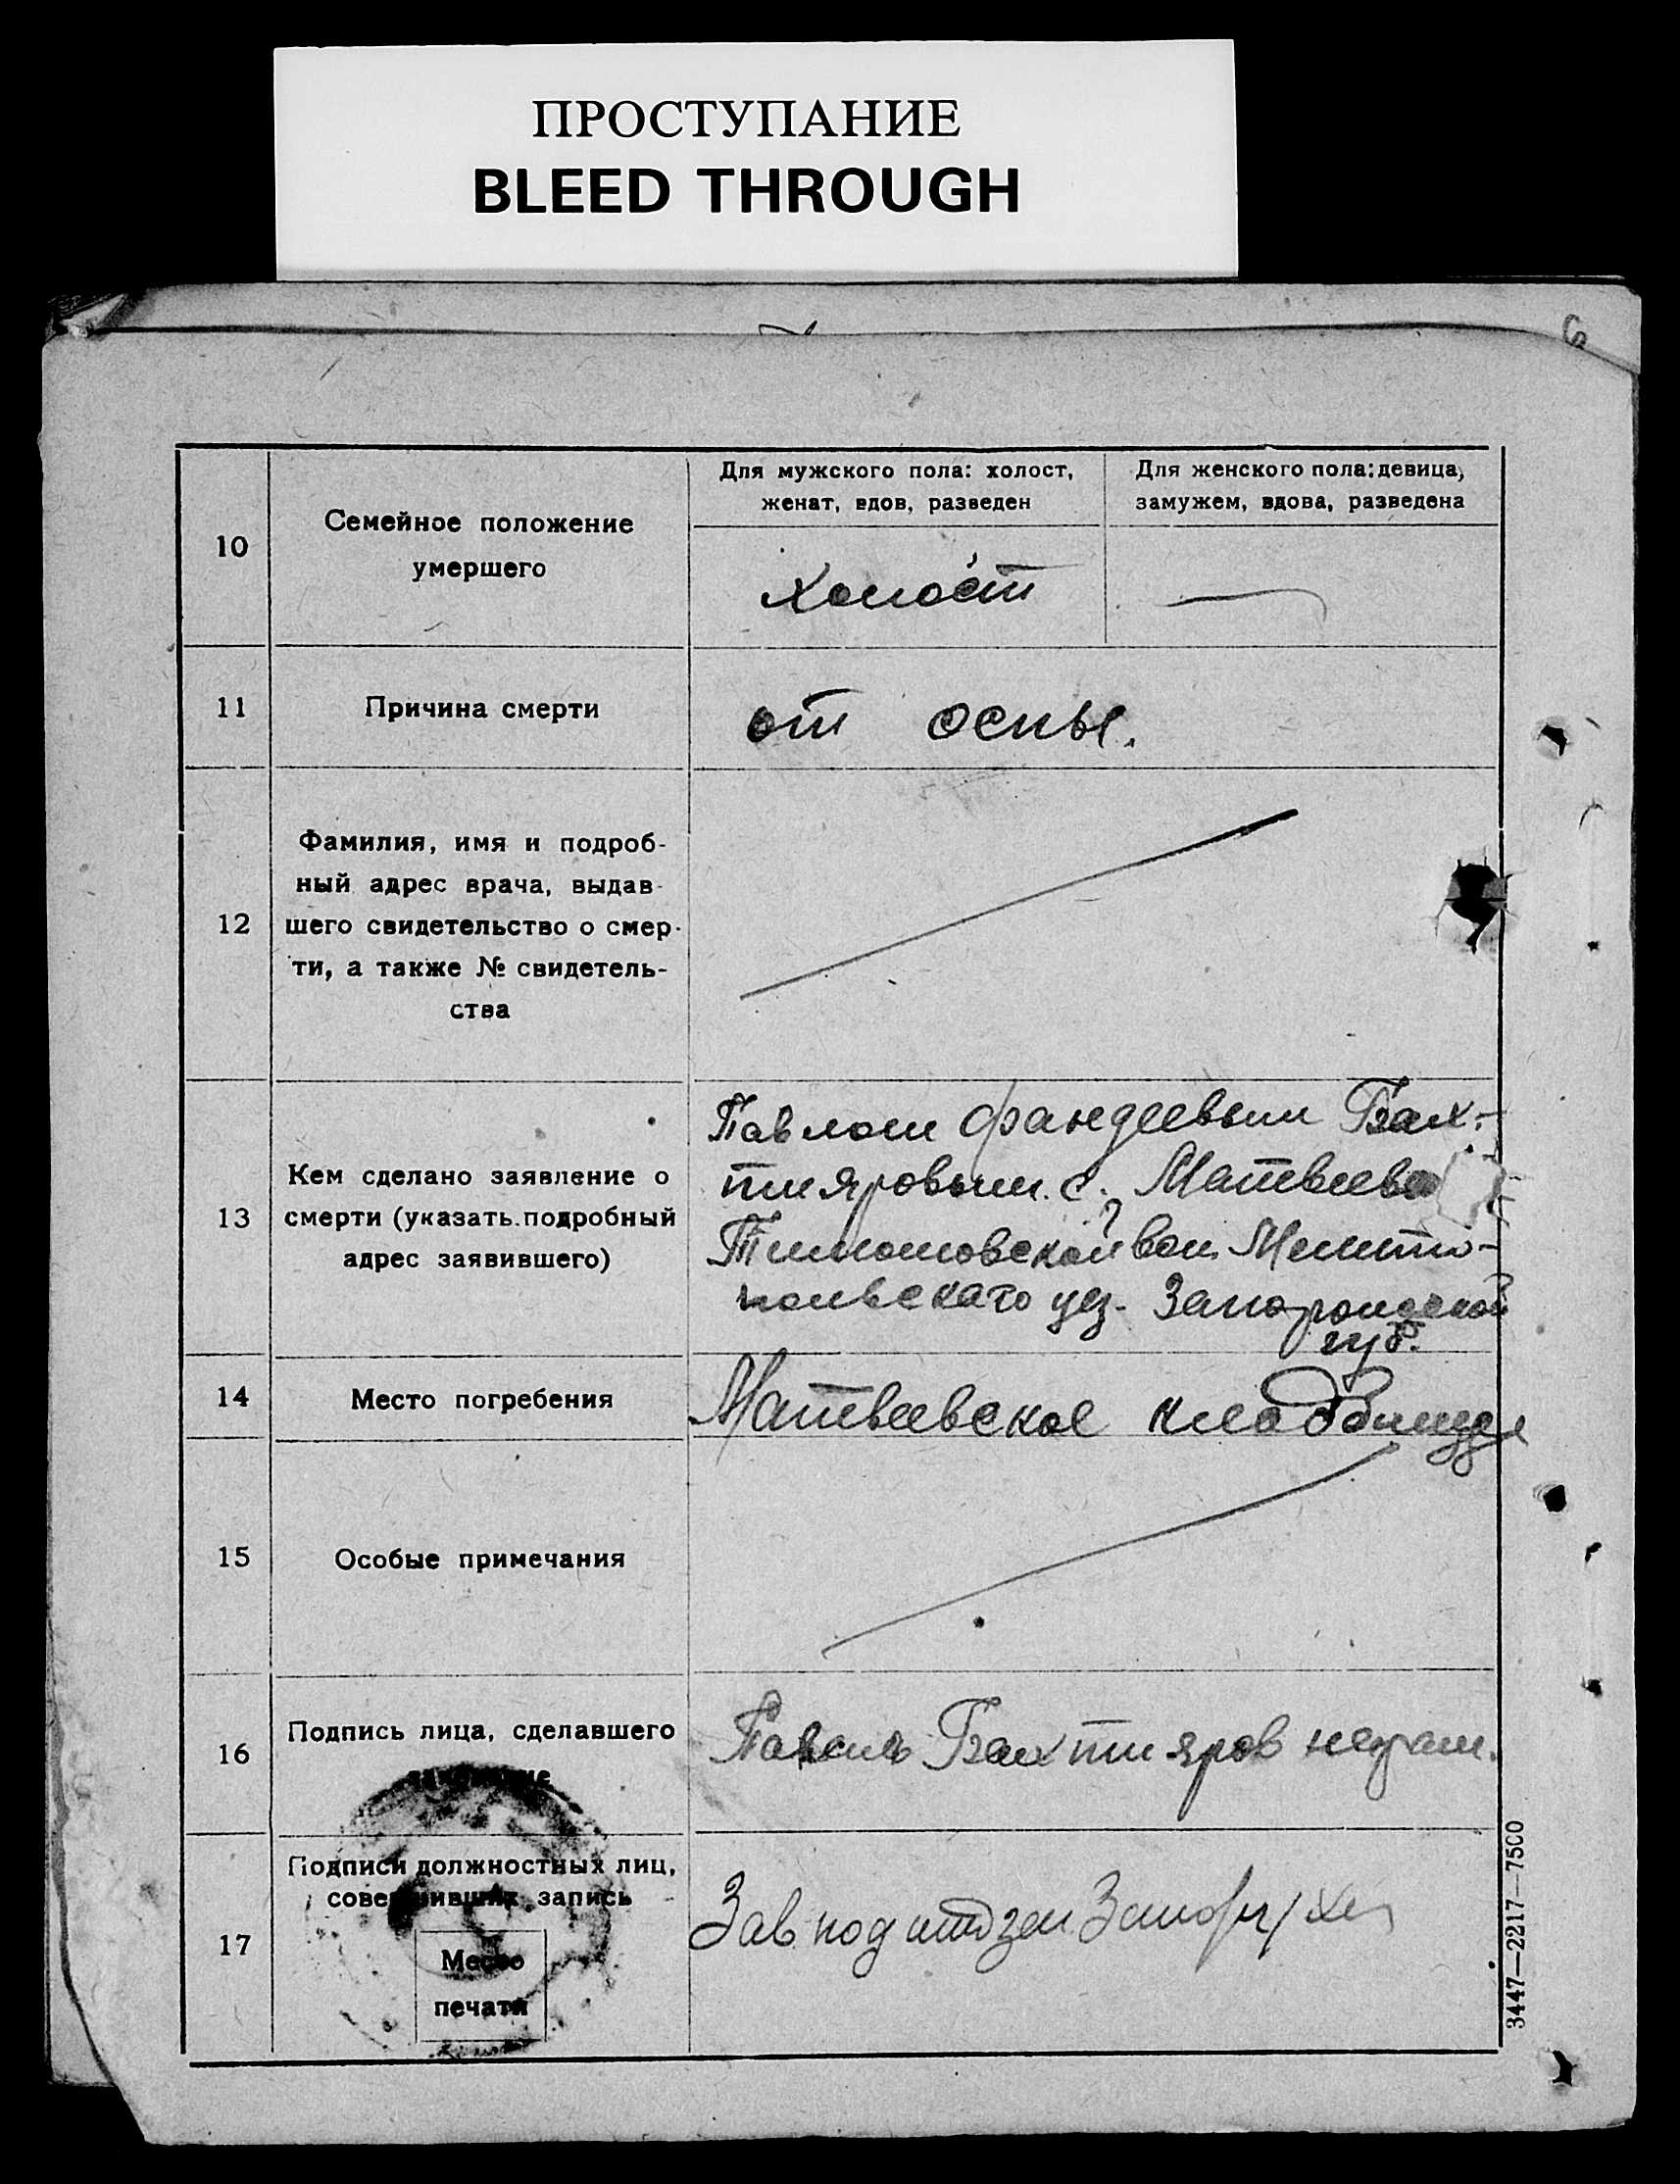 ПРОСТУПАНИЕ
BLEED THROUGH
10
Семейное положение
умершего
Для мужского пола: холост,
женат, вдов, разведен
Для женского пола: девица,
замужем, вдова, разведена
Холост
11
Причина смерти
от оспы.
12
Фамилия, имя и подроб-
ный адрес врача, выдав-
шего свидетельство о смер-
ти, а также № свидетель-
ства
13
Кем сделано заявление о
смерти (указать подробный
адрес заявившего)
Павлом Фандеевым Бах-
тияровым с. Матвеевка
Тимошовской вол. Мелито-
польскаго уез. Запорожской
губ.
14
Место погребения
Матвеевское кладбище
15
Особые примечания
16
Подпись лица, сделавшего
заявление
Павель Бахтияров неграм.
17
Подписи должностных лиц,
совершивших запись
Место
печати
Зав под
3447—2217—7500